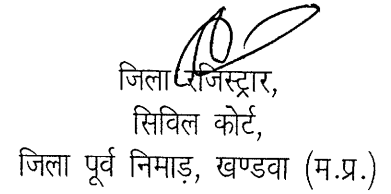 जिला रजिस्ट्रार,
सिविल कोर्ट,
जिला पूर्व निमाड़, खण्डवा (म.प्र.)